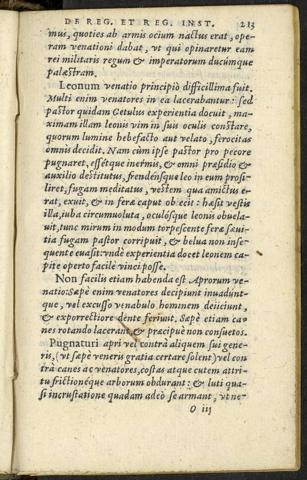 DE REG. ET REG. INST. 213
mus, quoties ab armis ocium nactus erat, ope-
ram venationi dabat, vt qui opinaretur eam
rei militaris regum & imperatorum ducúmque
palæstram.
Leonum venatio principiò difficillima fuit.
Multi enim venatores in ea lacerabantur: sed
pastor quidam Getulus experientia docuit, ma-
ximam illam leonis vim in suis oculis constare,
quorum lumine hebefacto aut velato, ferocitas
omnis decidit. Nam cùm ipse pastor pro pecore
pugnaret, essétque inermis, & omni præsidio &
auxilio destitutus, frendénsque leo in eum prosi-
liret, fugam meditatus, vestem qua amictus e-
rat, exuit, & in feræ caput obiecit: hæsit vestis
illa, iuba circumuoluta, oculósque leonis obuela-
uit, tunc mirum in modum torpescente feræ sæui-
tia fugam pastor corripuit, & belua non inse-
quente euasit: vnde experientia docet leonem ca-
pite operto facile vinci posse.
Non facilis etiam habenda est Aprorum ve-
natio: Sæpè enim venatores decipiunt inuadúnt-
que, vel excusso venabulo hominem deiiciunt,
& exporrectiore dente feriunt. Sæpe etiam ca-
nes rotando lacerant, & præcipuè non consuetos.
Pugnaturi apri vel contrà aliquem sui gene-
ris, (vt sæpè veneris gratia certare solent) vel con-
trà canes ac venatores, costas atque cutem attri-
tu frictionéque arborum obdurant: & luti qua-
si incrustatione quadam adeò se armant, vt ne-
O iij